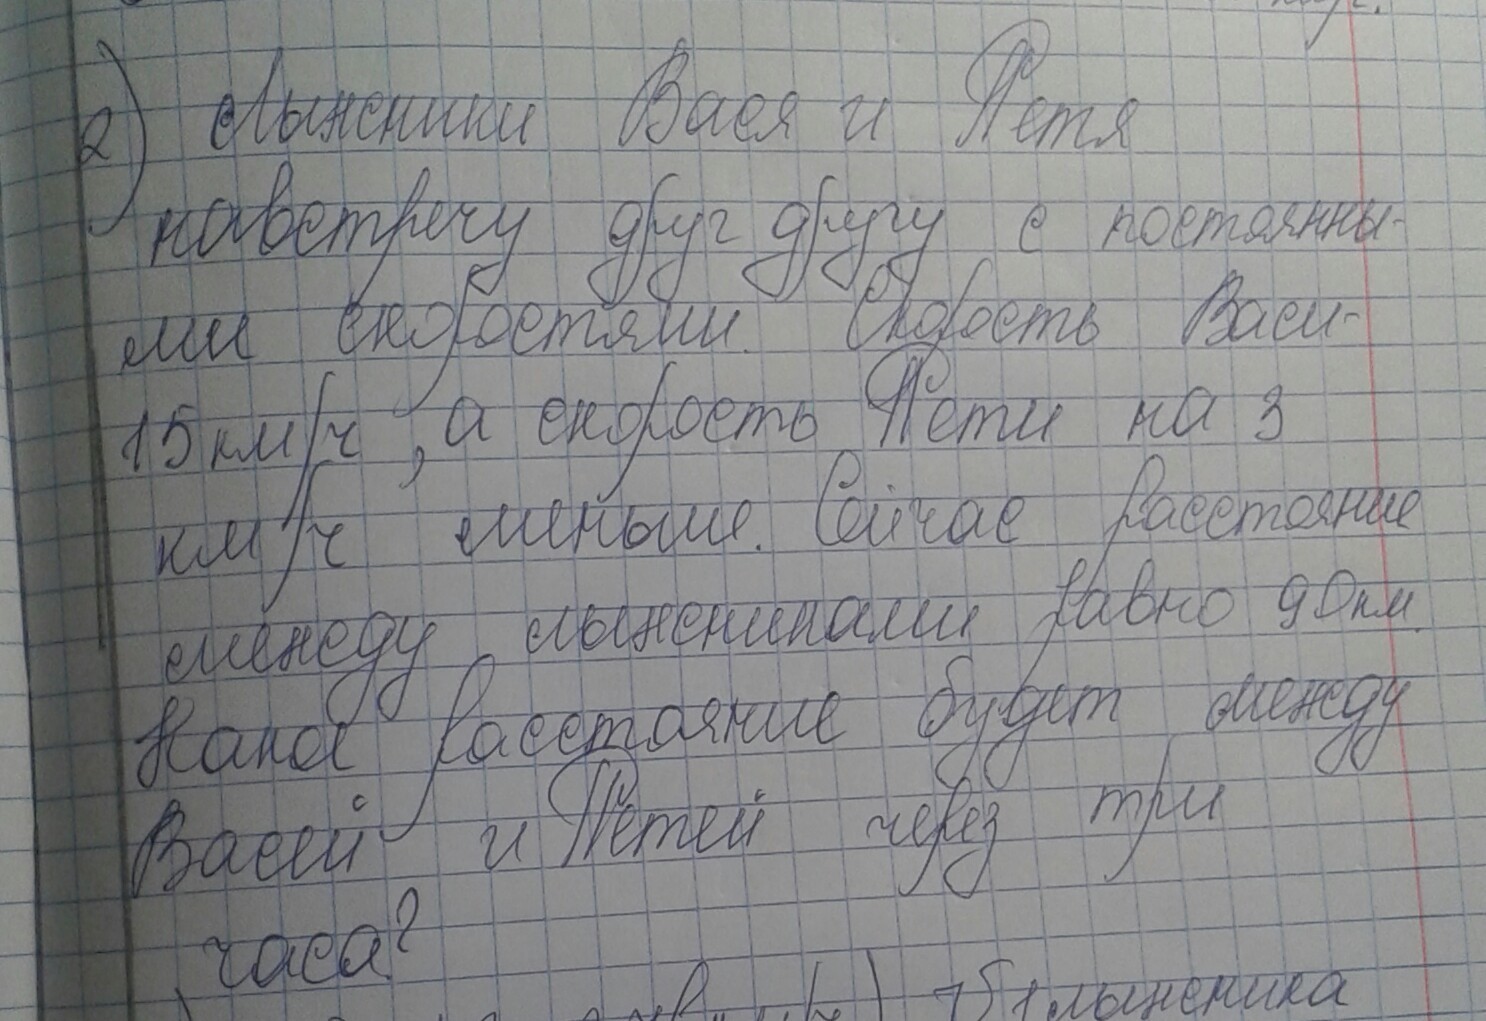 2) Лыжники Вася и Петя
навстречу друг другу с постоянны-
ми скоростями. Скорость Васи-
15км/ч, а скорость Пети на 3
км/ч меньше. Сейчас расстояние
между лыжниками равно 90км.
Какое расстояние будет между
Васей и Петей через три
часа?
лыжника